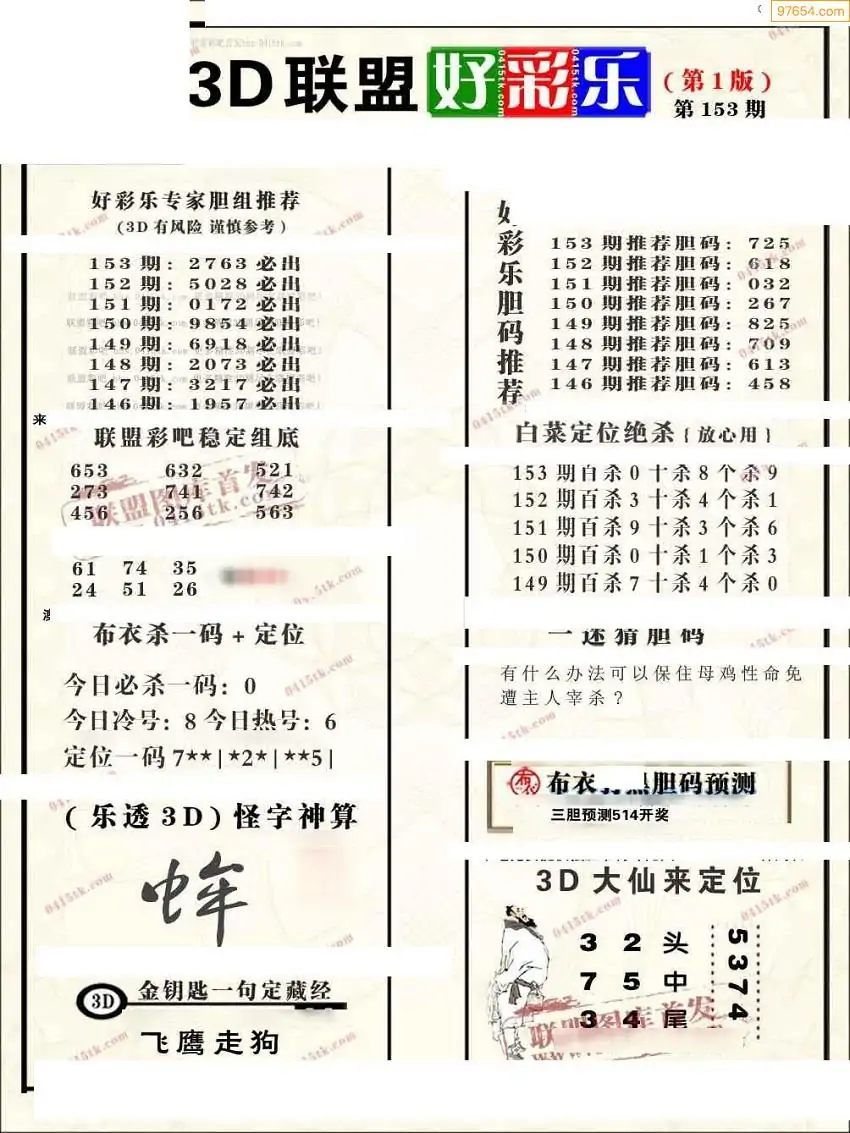 97654.com
3D联盟 好彩乐 (第1版)
第153期
好彩乐专家胆组推荐
(3D有风险 谨慎参考)
153期: 2763必出
152期: 5028必出
151期: 0172必出
150期: 9854必出
149期: 6918必出
148期: 2073必出
147期: 3217必出
146期: 1957必出
来
联盟彩吧稳定组底
653 632 521
273 741 742
456 256 563
61 74 35
24 51 26
布衣杀一码+定位
今日必杀一码: 0
今日冷号: 8 今日热号: 6
定位一码 7**|*2*|**5|
(乐透3D)怪字神算
3D 金钥匙一句定藏经
飞鹰走狗
好彩乐胆码推荐
153期推荐胆码: 725
152期推荐胆码: 618
151期推荐胆码: 032
150期推荐胆码: 267
149期推荐胆码: 825
148期推荐胆码: 709
147期推荐胆码: 613
146期推荐胆码: 458
白菜定位绝杀{放心用}
153期百杀0十杀8个杀9
152期百杀3十杀4个杀1
151期百杀9十杀3个杀6
150期百杀0十杀1个杀3
149期百杀7十杀4个杀0
一迷猜胆码
有什么办法可以保住母鸡性命免
遭主人宰杀?
布衣 胆码预测
三胆预测514开奖
3D大仙来定位
3 2 头
7 5 中
3 4 尾
5374
联盟图库首发
0415tk.com